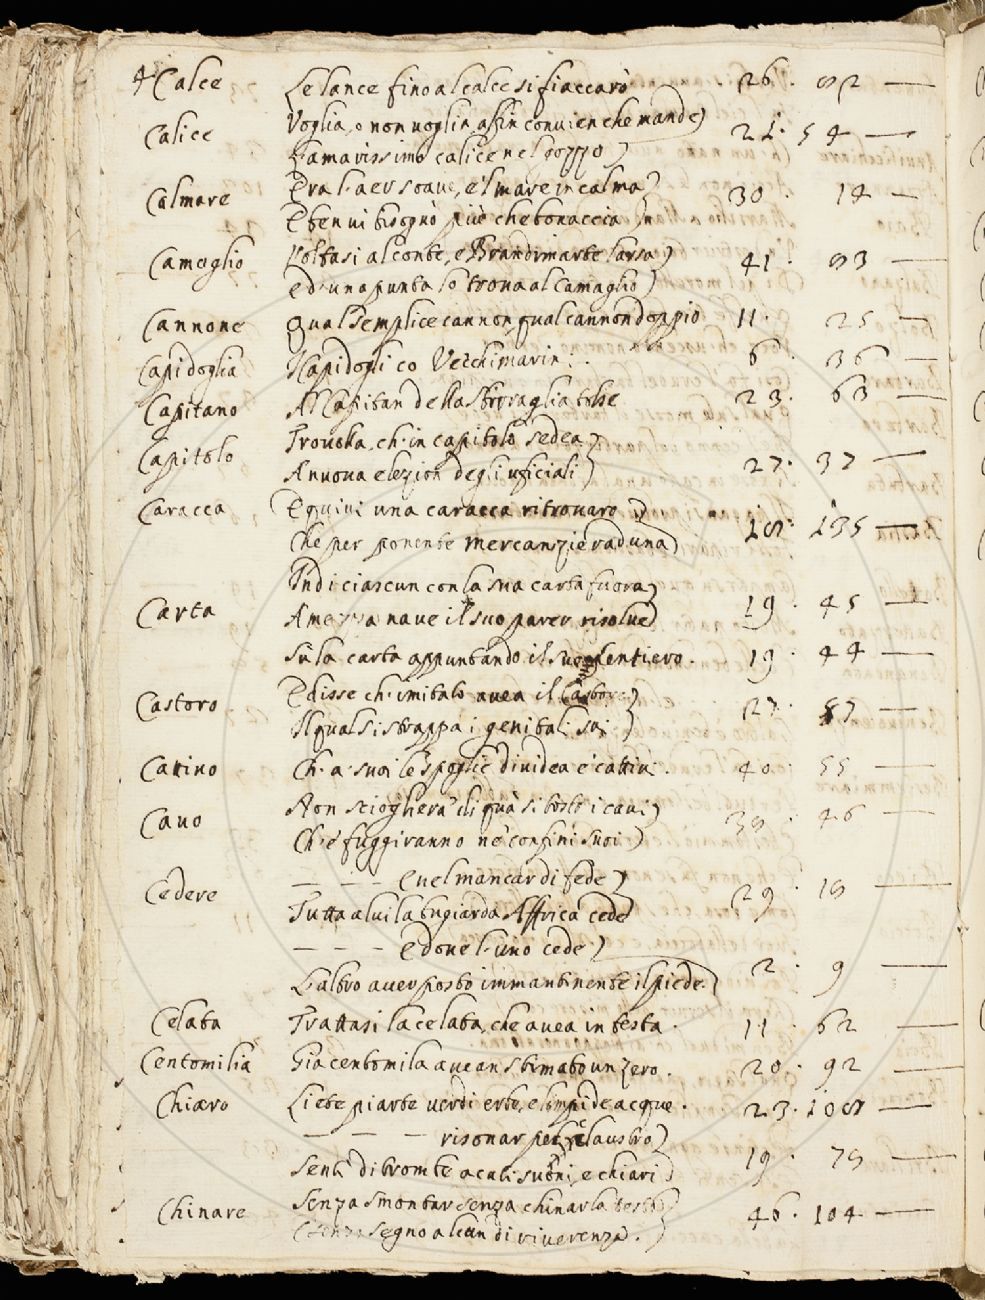 4 Calce Le lance fino al calce si fiaccaro 26. 82 —
Calice Voglia, o non voglia, alfin convien che mande)
L'amarissimo calice nel gozzo) 21. 54 —
Calmare Era l'aer soave, e'l mare in calma)
E ben vi bisognò più che bonaccia 30 14 —
Camaglio Voltasi al conte, e Brandimarte lassa)
ed' una punta lo trova al Camaglio) 41. 83 —
Cannone qual semplice cannon, qual cannon doppio 11. 25 —
Capidoglia Capidogli co Vecchi marin: 6. 36 —
Capitano Al Capitan della sbirraglia tolse 23. 63 —
Capitolo Trovolla, ch'in capitolo sedea)
A nuova elezion degli uficiali) 27. 37 —
Caracca E quivi una caracca ritrovaro)
Che per ponente mercanzie raduna) 18. 135 —
Indi ciascun con la sua carta fuora)
Carta A mezza nave il suo parer risolve) 19. 45 —
Su la carta appuntando il suo sentiero. 19. 44 —
Castoro E disse ch'imitato avea il Castore)
Il qual si strappa i genitali sui) 27. 57 —
Cattivo Ch'a' suoi le spoglie dividea e' cattivi. 40. 55 —
Cavo Non scioglierà di quà sì tosto i cavi)
Ch'e' fuggiranno ne' confini suoi) 38. 46 —
Cedere — — — e nel mancar di fede)
Tutta a lui la bugiarda Affrica cede) 29. 18 —
— — — e dove l'uno cede)
L'altro aver posto immantinente il piede.) 2. 9 —
Celata Trattasi la celata, che avea in testa. 11. 62 —
Centomilia Già centomila avean stimato un Zero. 20. 92 —
Chiaro Liete piante verdi erbe, e limpide acque. 23. 108 —
— — — risonar pel claustro)
Senti di trombe acuti suoni, e chiari) 19. 78 —
Chinare Senza smontar senza chinar la testa)
E senza segno alcun di riverenza.) 46. 104 —